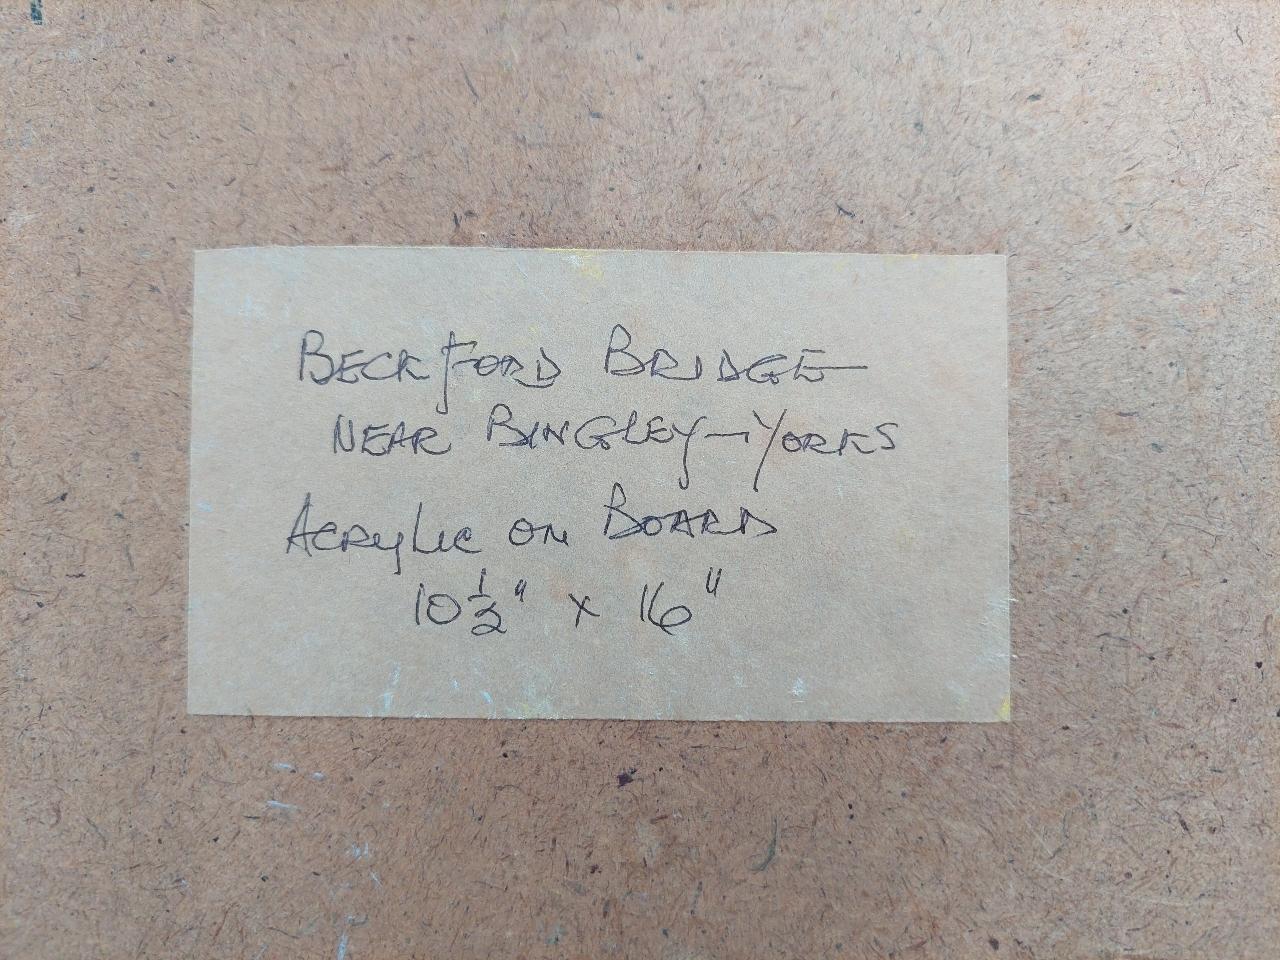 BECKFORD BRIDGE
NEAR BINGLEY - YORKS
ACRYLIC ON BOARD
10 1/2" x 16"